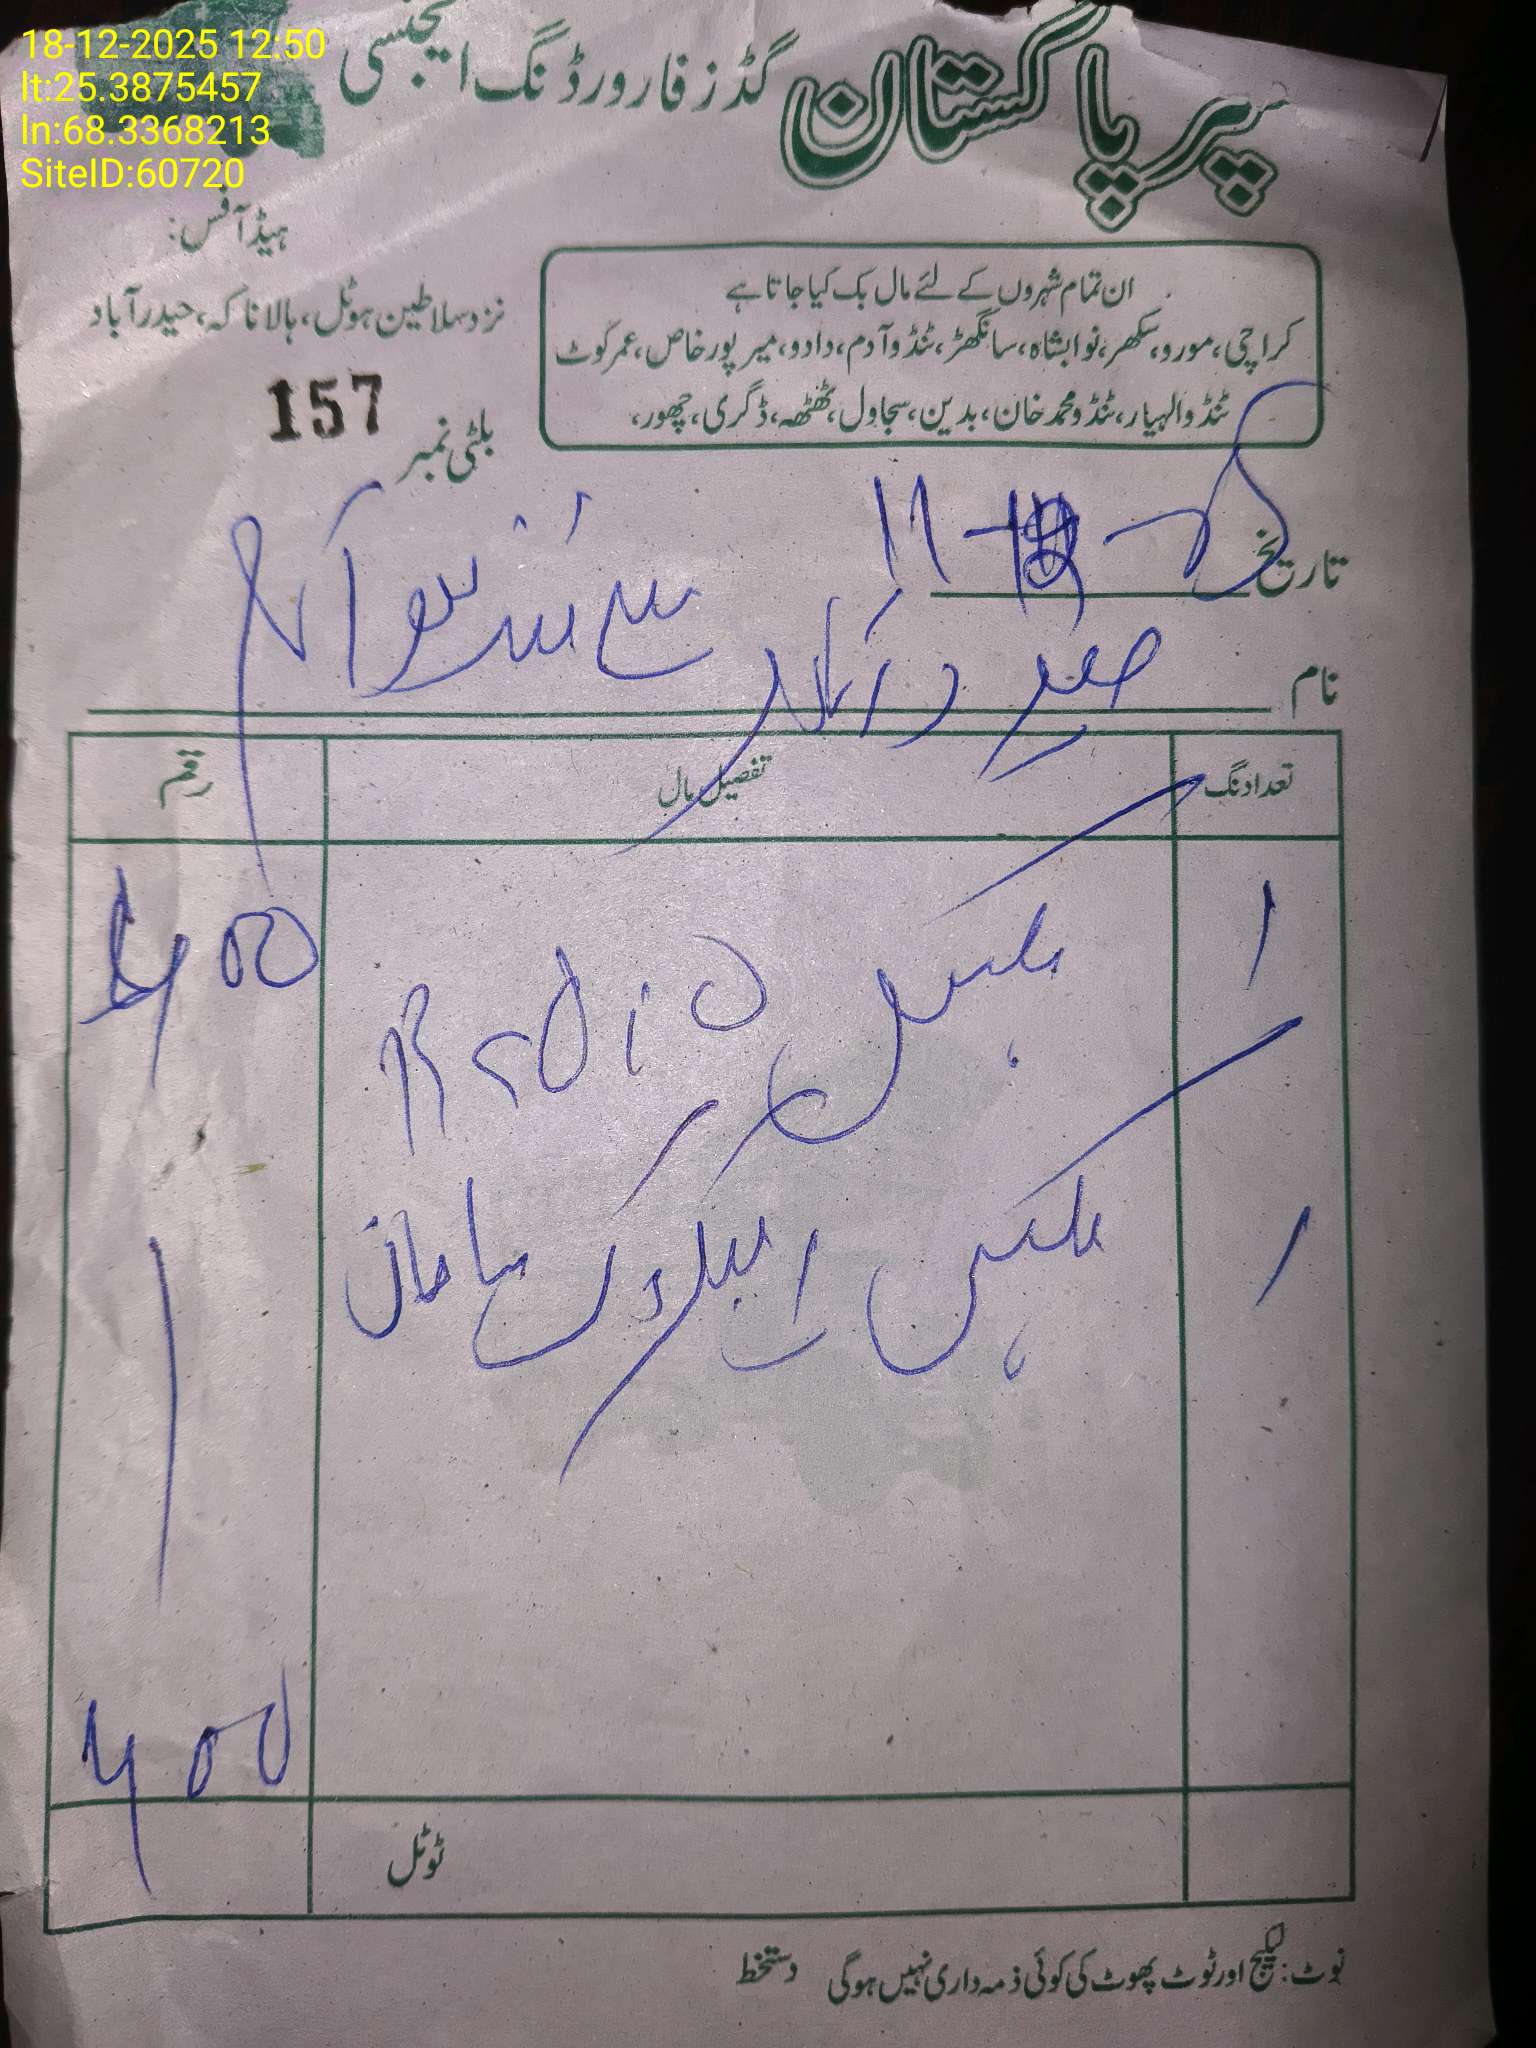 18-12-2025 12:50
lt:25.3875457
ln:68.3368213
SiteID:60720
سپر پاکستان گڈز فارورڈنگ ایجنسی
ہیڈ آفس:
نزد سلاطین ہوٹل، ہالا ناکہ، حیدرآباد
ان تمام شہروں کے لئے مال بک کیا جاتا ہے
کراچی، مورو، سکھر، نوابشاہ، سانگھڑ، ٹنڈوآدم، دادو، میرپورخاص، عمرکوٹ
ٹنڈوالہیار، ٹنڈومحمدخان، بدین، سجاول، ٹھٹھہ، ڈگری، چھور،
بلٹی نمبر 157
تاریخ
نام حیدرآباد سے ٹنڈوآدم
تعداد نگ تفصیل مال رقم
1 بکس Radio 400
1 بکس سامان
400
ٹوٹل
نوٹ: لیکیج اور ٹوٹ پھوٹ کی کوئی ذمہ داری نہیں ہوگی دستخط